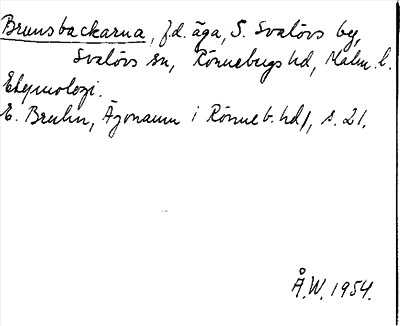 Brunsbackarna, f.d. äga, S. Svalövs by,
Svalövs sn, Rönnebergs hd, Malm. l.
Etymologi.
E. Bruhn, Ägonamn i Rönneb. hd, s. 21.
Å.W. 1954.